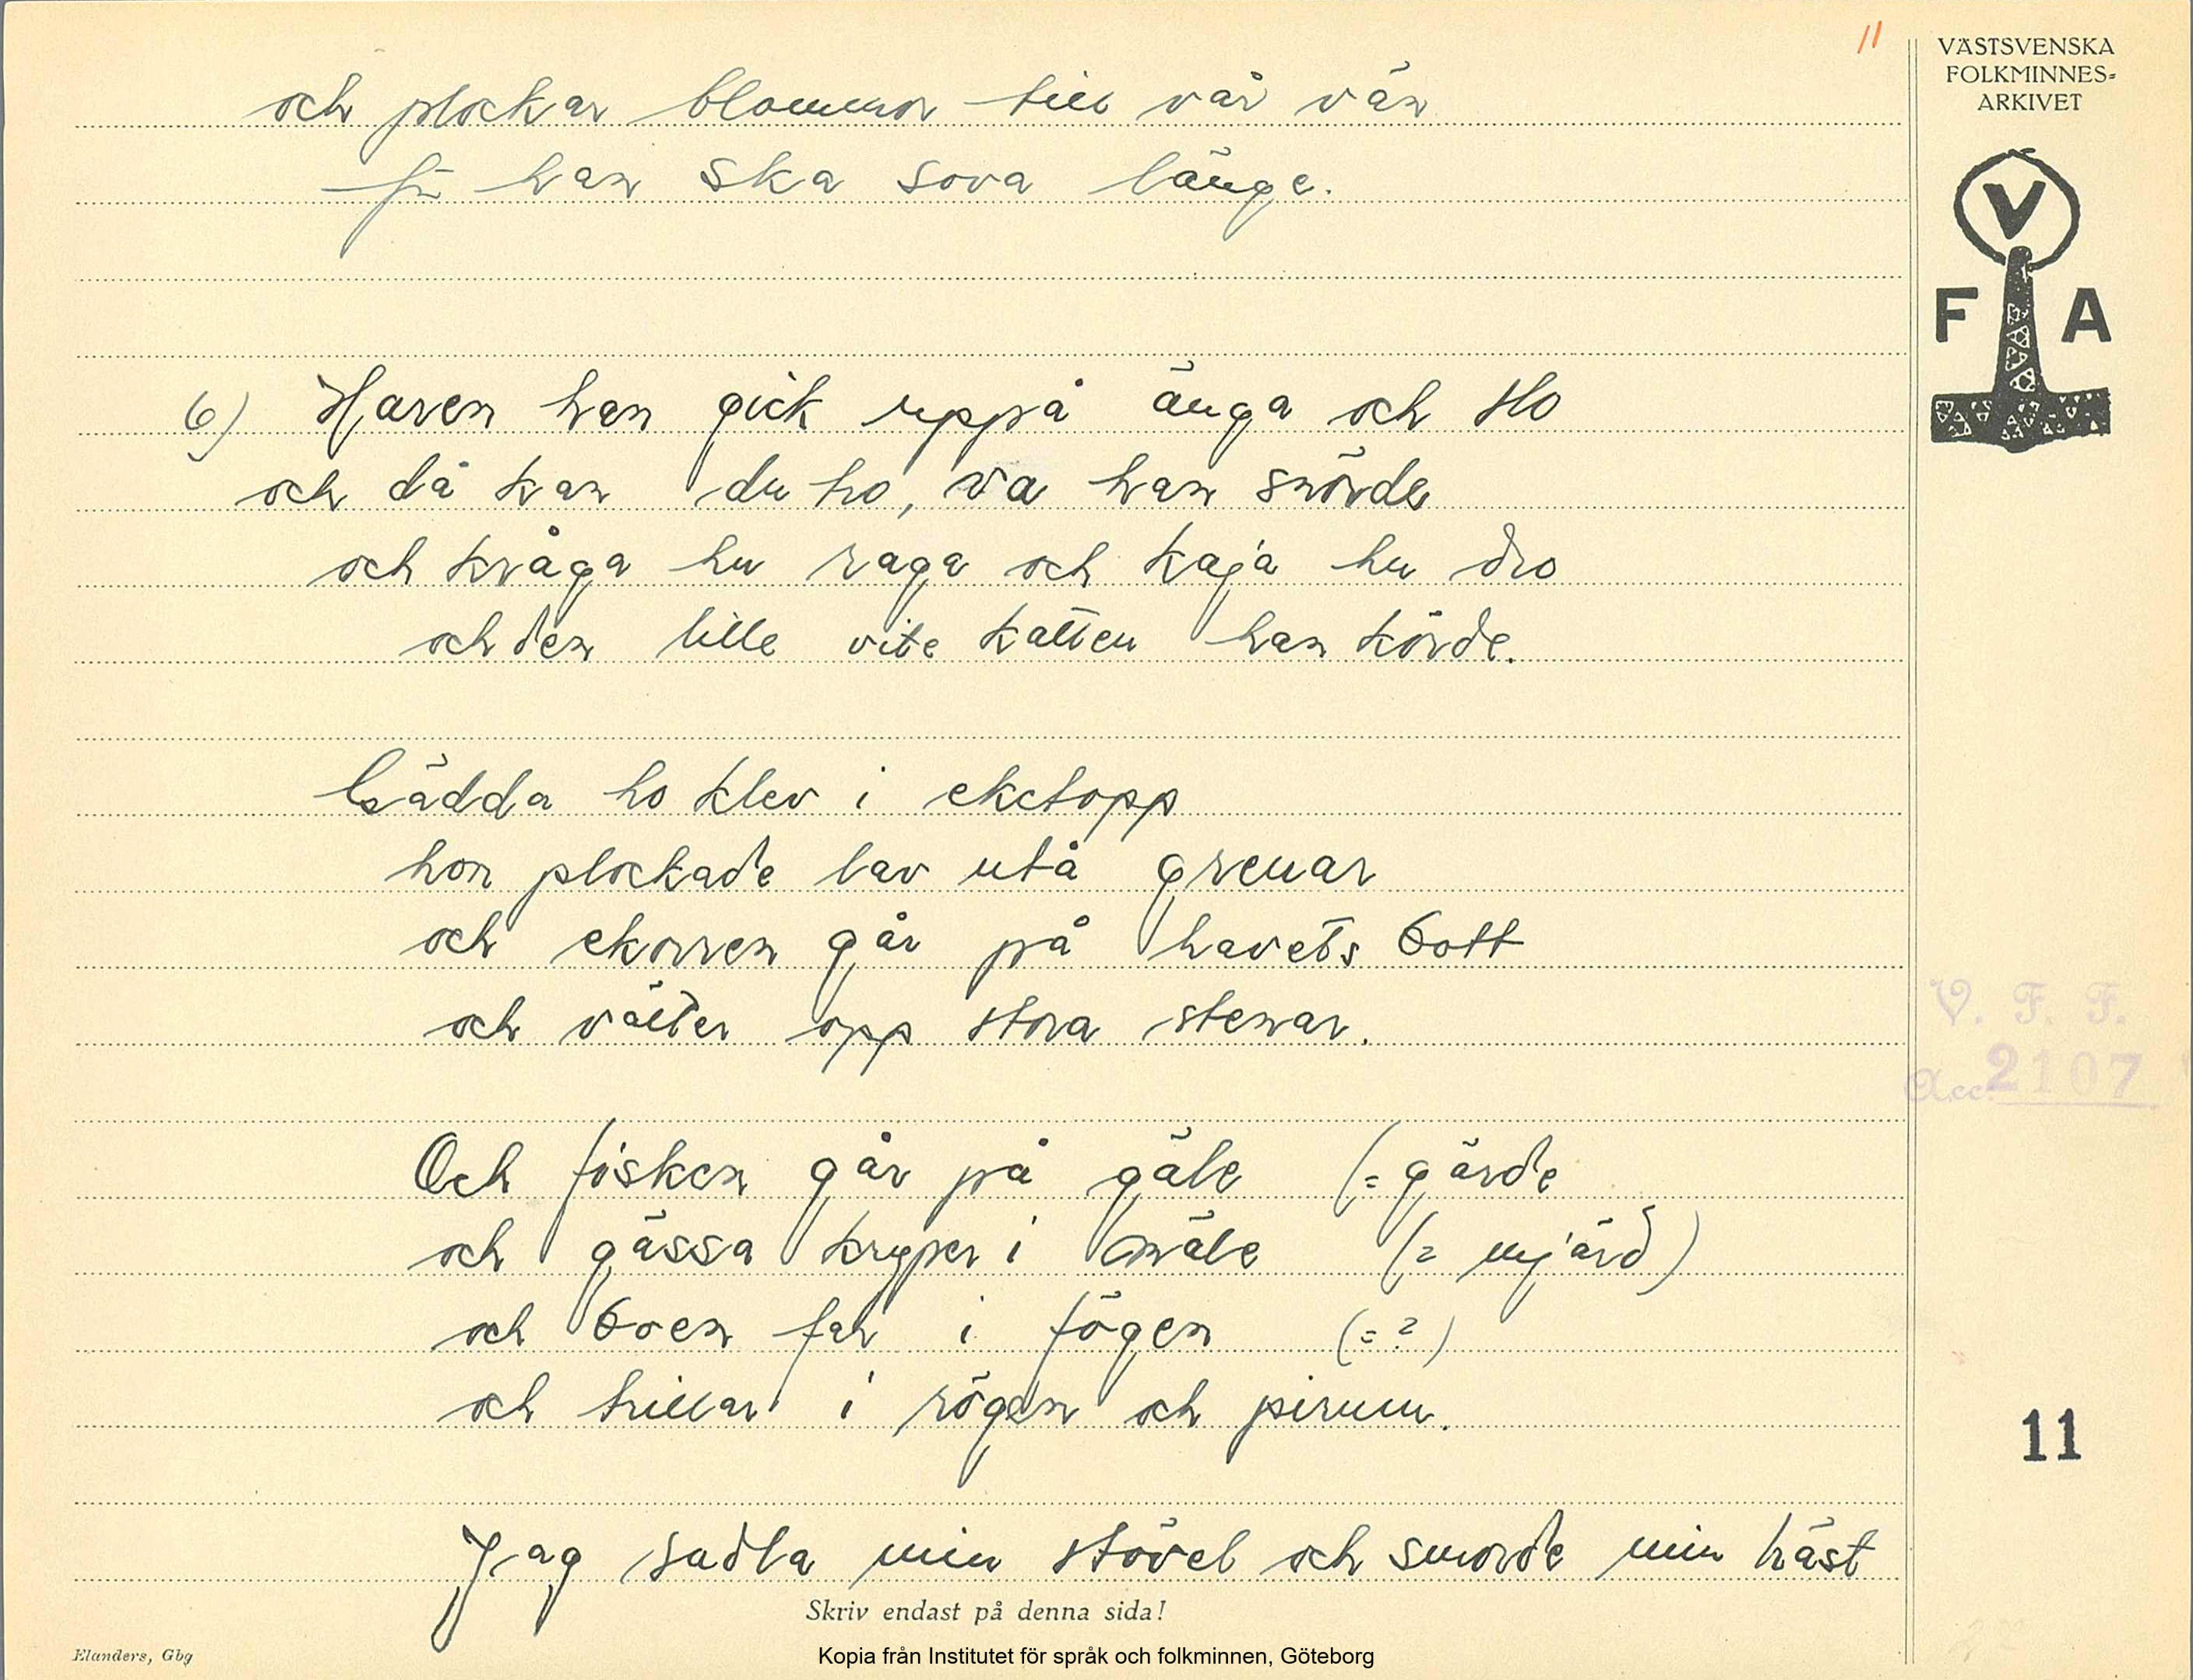 11
VÄSTSVENSKA
FOLKMINNES-
ARKIVET
V
F A
och plockar blommor till vår vän
för han ska sova länge.
6) Haren han gick uppå änga och slo
och då kan du tro, va han snörde
och kråga hu raga och kaja hu dro
och den lille vite katten han körde.
Gädda ho klev i eketopp
hon plockade lav utå grenar
och ekorren går på havets bott
och välter opp stora stenar.
Och fisken går på gäle (= gärde
och gässa kryper i mäle (= mjärd)
och boen far i fögen (= ?)
och trillar i rögen och pirum.
Jag sadla min stövel och smorde min häst
V. F. F.
Acc. 2107
11
Skriv endast på denna sida!
Elanders, Gbg
Kopia från Institutet för språk och folkminnen, Göteborg